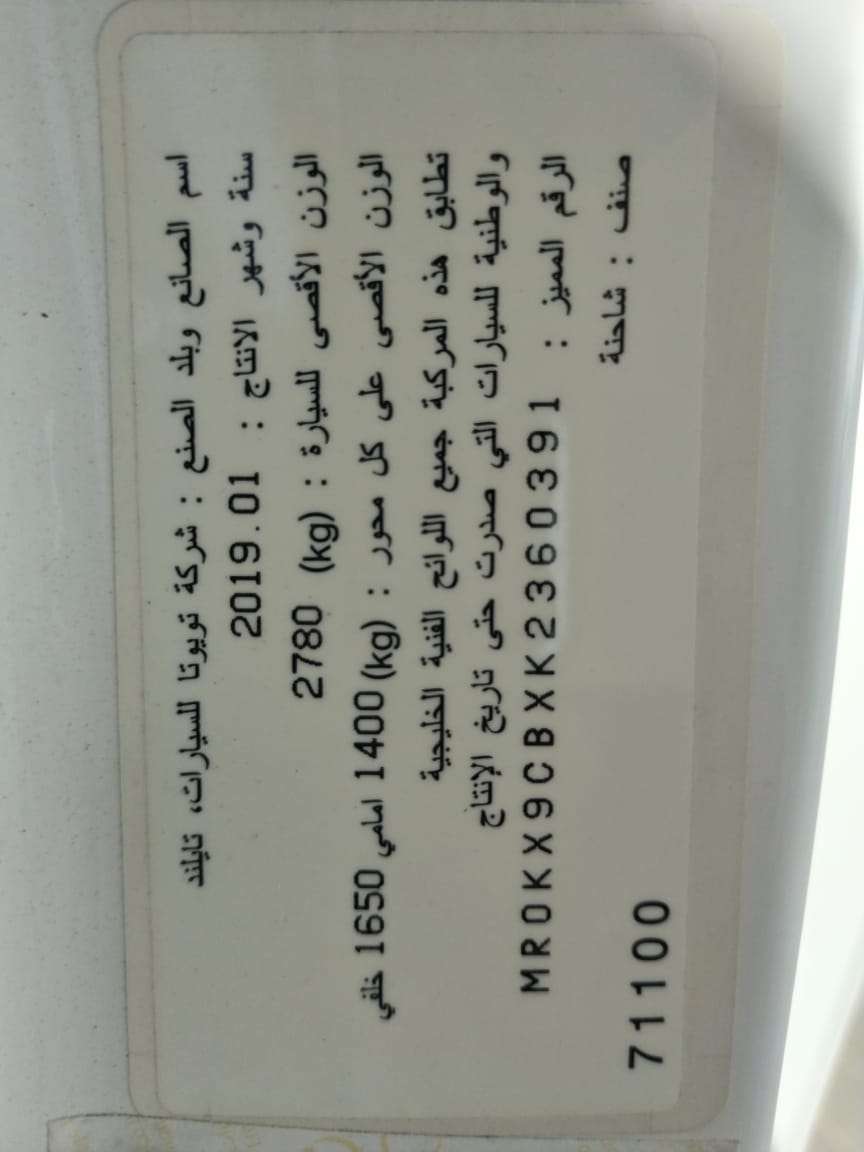 اسم الصانع وبلد الصنع : شركة تويوتا للسيارات، تايلند
سنة وشهر الانتاج : 2019.01
الوزن الأقصى للسيارة : (kg) 2780
الوزن الأقصى على كل محور : (kg) 1400 امامي 1650 خلفي
تطابق هذه المركبة جميع اللوائح الفنية الخليجية
والوطنية للسيارات التي صدرت حتى تاريخ الإنتاج
الرقم المميز : MR0KX9CBXK2360391
صنف : شاحنة
71100